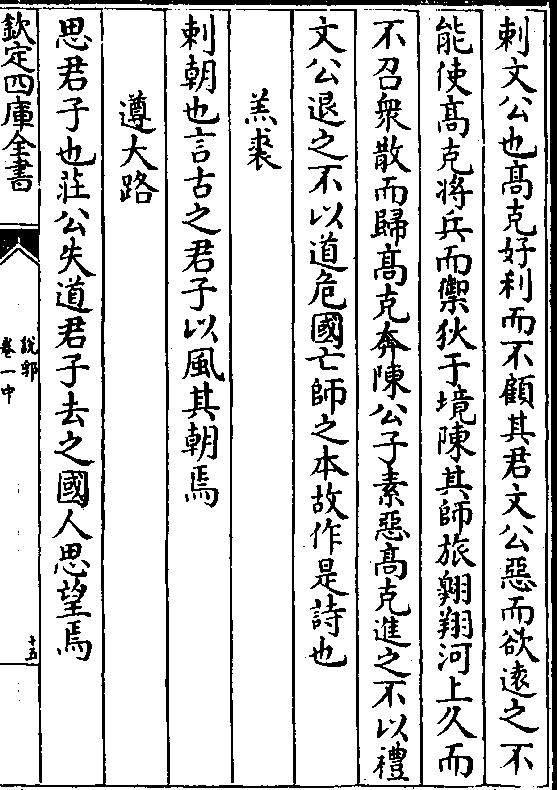 刺文公也髙克好利而不顧其君文公惡而欲逺之不
能使髙克将兵而禦狄于境陳其師旅翶翔河上久而
不召衆散而歸髙克奔陳公子素惡髙克進之不以禮
文公退之不以道危國亡師之本故作是詩也
羔裘
刺朝也言古之君子以風其朝焉
遵大路
思君子也荘公失道君子去之國人思望焉
欽定四庫全書
說郛
卷一中
十五